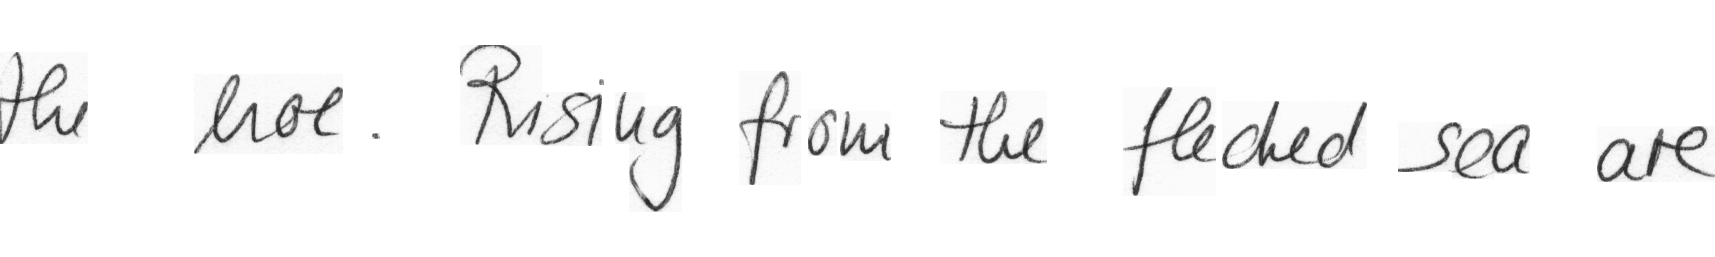 the hoe. Rising from the flecked sea are